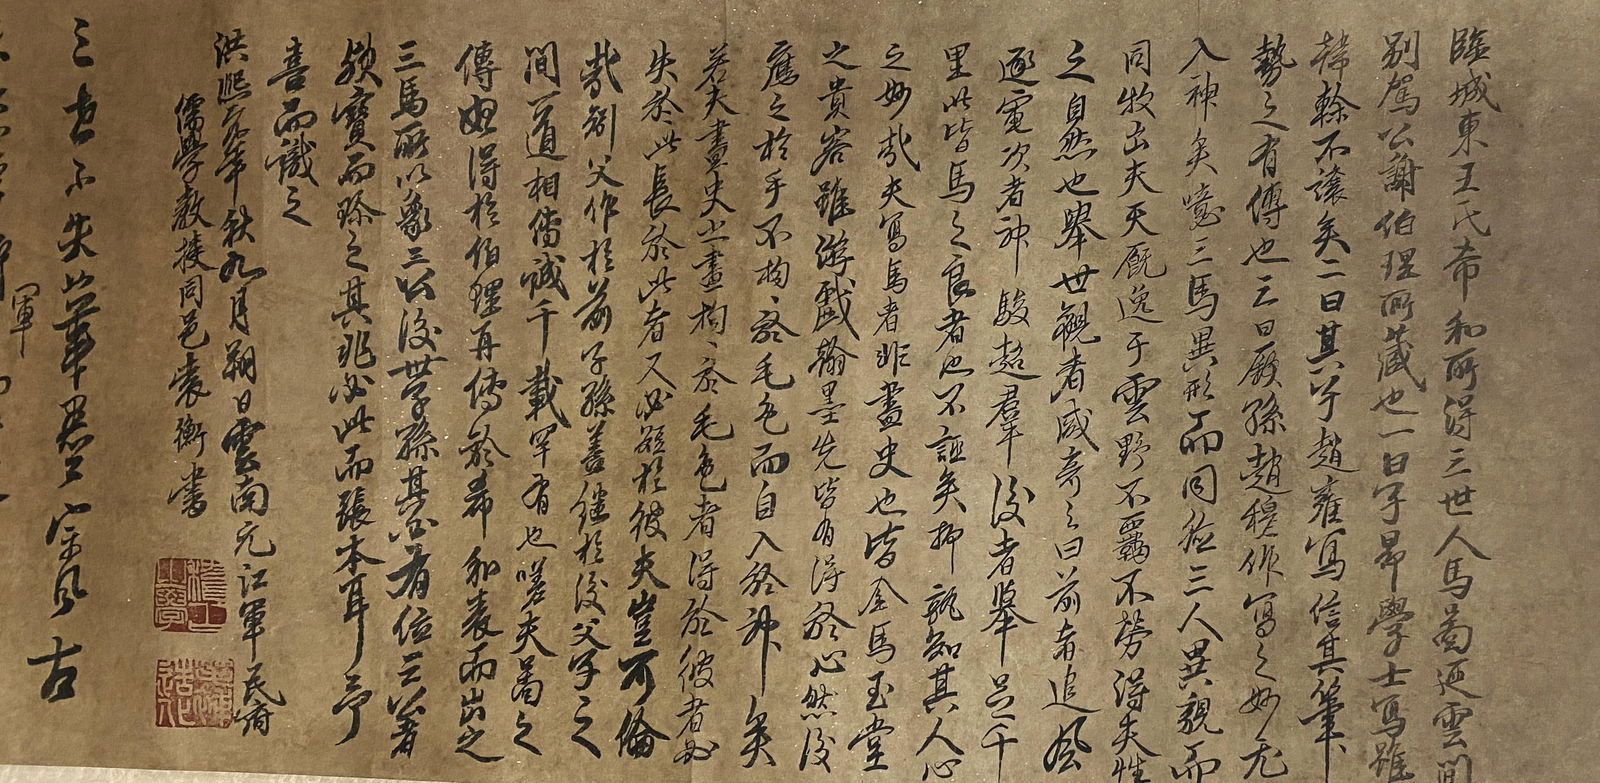 臨城東王氏希和所得三世人馬啚迺雲間
別駕公謝伯理所藏也一曰子昂學士寫雖
韓幹不讓矣二曰其子趙雍寫信其筆
勢之有傳也三曰厥孫趙穆作寫之妙尤
入神矣噫三馬異形而同並三人異貌而
同牧出夫天厩逸于雲野不羈不勞得夫性
之自然也舉世觀者咸奇之曰前者追風
逐電次者神駿超羣後者舉足千
里此皆馬之良者也不誣矣抑孰知其人心
之妙哉夫寫馬者非畫史也皆金馬玉堂
之貴客雖游戲翰墨先皆有得於心然後
應之於手不拘拘於毛色而自入於神矣
若夫畫史之畫拘拘於毛色者得於彼者必
失於此長於此者又必短於彼夫豈可倫
哉創父作於前子孫善繼於後父子之
間一道相傳誠千載罕有也嗟夫啚之
傳始得於伯理再傳於希和裝而出之
三馬所以象三公後世子孫其必有位三公者
歟寶而珍之其非必此而張本耳予
喜而識之
洪熙元年秋九月朔日雲南元江軍民府
儒學教授同邑袁衡書
三世不失筆墨宗風古
軍